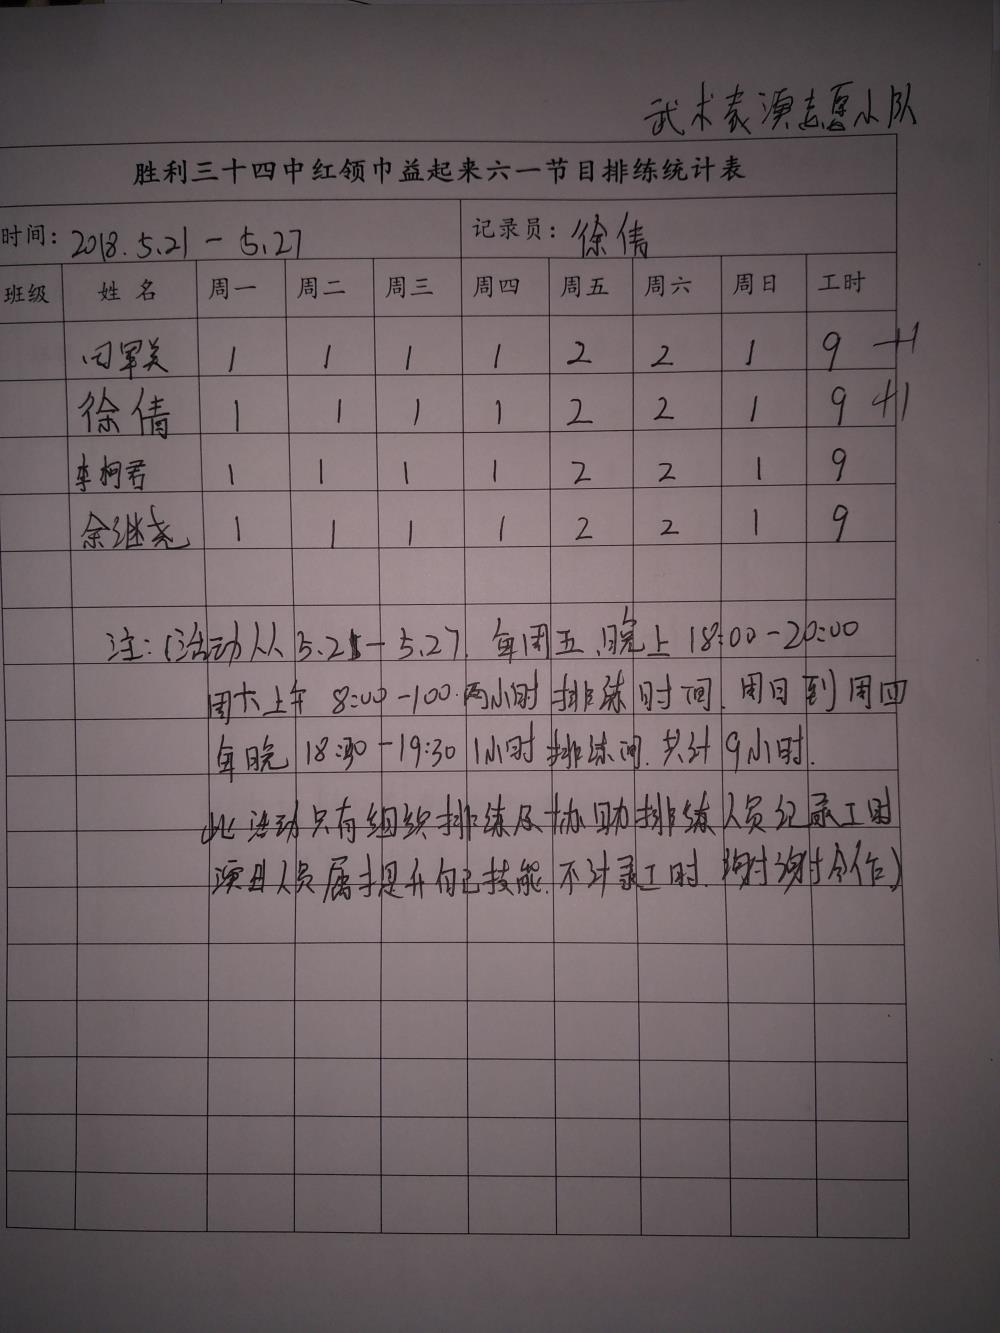 武术表演志愿小队
胜利三十四中红领巾益起来六一节目排练统计表
时间: 2018.5.21-5.27 记录员: 徐倩
班级 姓名 周一 周二 周三 周四 周五 周六 周日 工时
田军美 1 1 1 1 2 2 1 9 +1
徐倩 1 1 1 1 2 2 1 9 +1
李柯君 1 1 1 1 2 2 1 9
余继尧 1 1 1 1 2 2 1 9
注:(活动从5.21-5.27.每周五.晚上18:00-20:00
周六上午8:00-100.两小时排练时间.周日到周四
每晚18:30-19:30 1小时排练间.共计9小时.
此活动只有组织排练及协助排练人员纪录工时
演出人员属提升自己技能.不计录工时.谢谢合作)